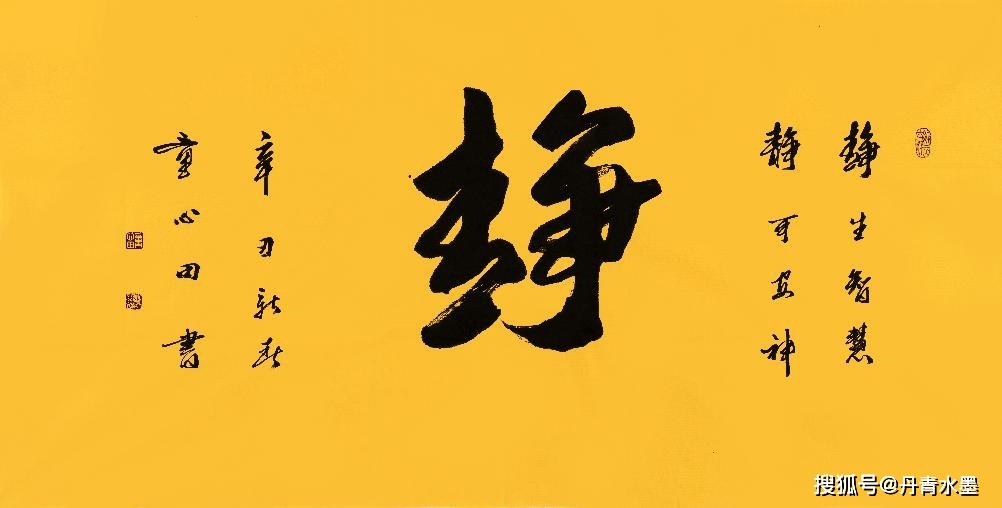 静生智慧
静可安神
静
辛丑新春
童心田書
搜狐号@丹青水墨